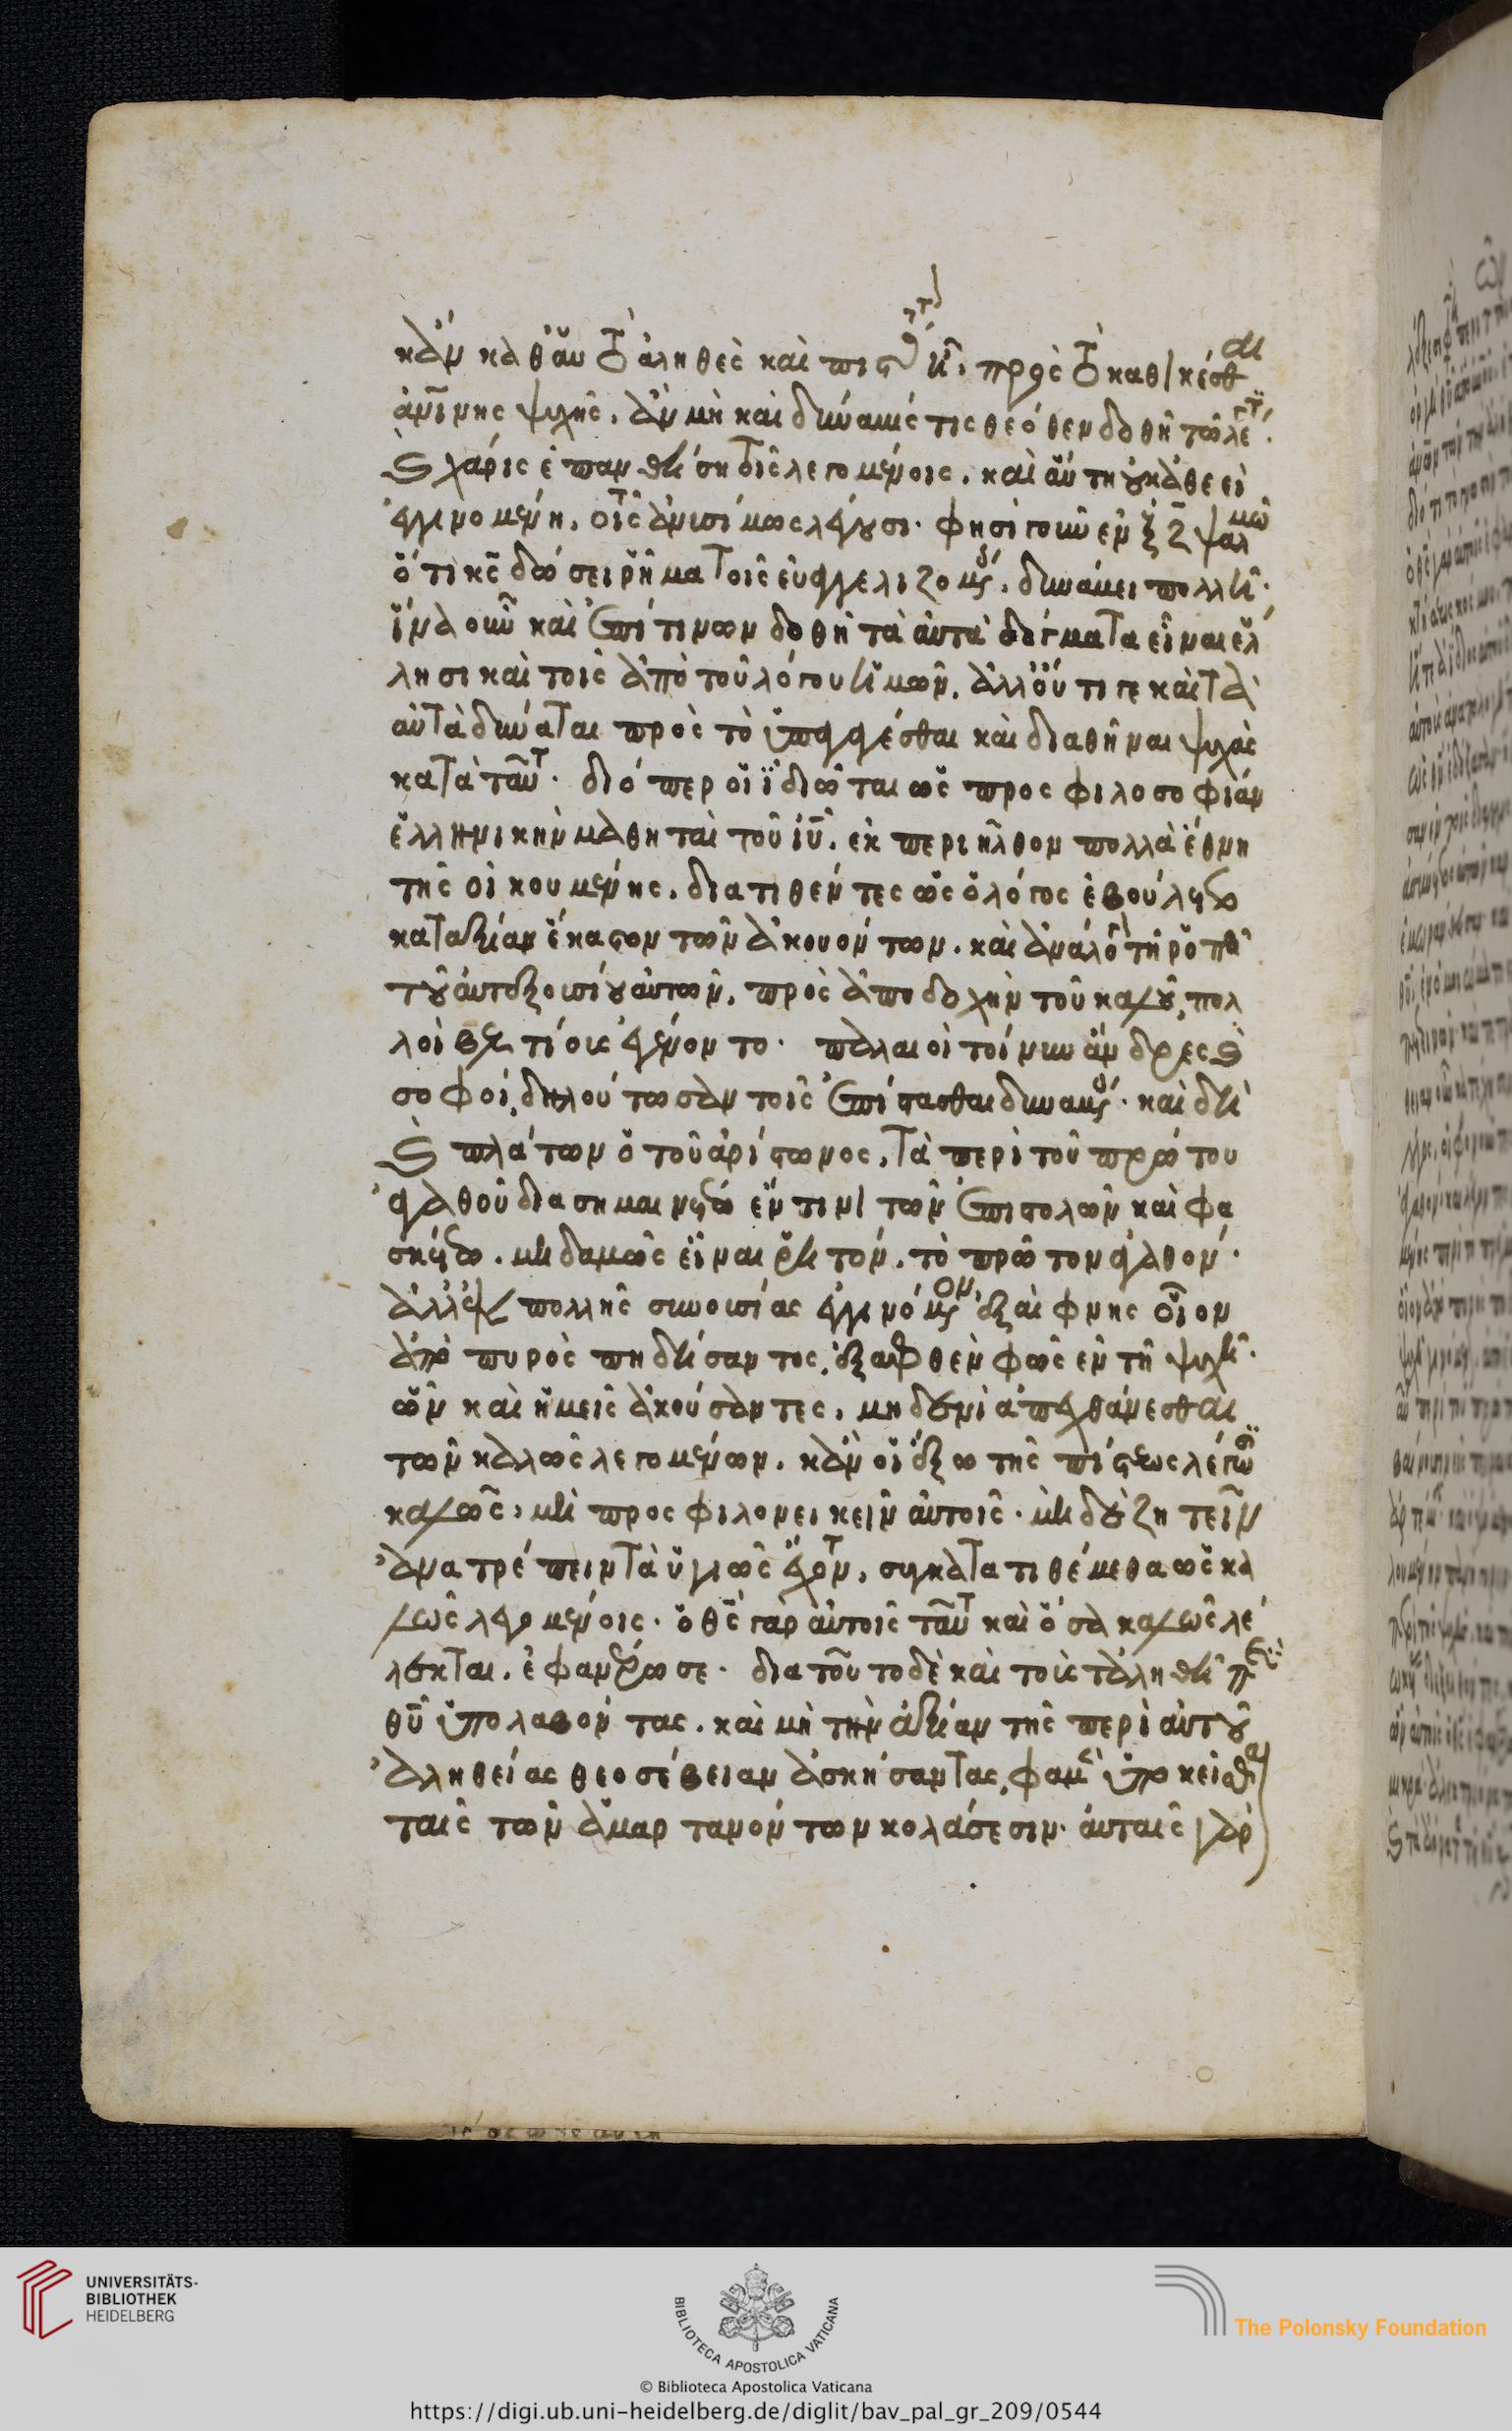 κἂν καθ' αὑτὸ ἀληθὲς καὶ πιστικὸν ᾖ, πρὸς τὸ καθικέσθαι
ἀνίνης ψυχῆς, ἂν μὴ καὶ δύναμίς τις θεόθεν δοθῆ τῶ λέγοντι.
καὶ χάρις ἐπανθήση τοῖς λεγομένοις. καὶ αὕτη οὐκ ἀθεεὶ
ἐγγινομένη, τοῖς ἀνυσίμως λέγουσι. φησὶ γοῦν ἐν ξζ ψαλμῶ
ὅτι κς δώσει ῥῆμα τοῖς εὐαγγελιζομένοις, δυνάμει πολλῆ.
ἵνα οὖν καὶ ἐπί τινων δοθῆ τὰ αὐτὰ δόγματα εἶναι ἕλ
λησι καὶ τοῖς ἀπὸ τοῦ λόγου ἡμῶν, ἀλλ' οὔτι γε καὶ τὰ
αὐτὰ δύναται πρὸς τὸ ὑπαγαγέσθαι καὶ διαθῆναι ψυχὰς
κατὰ ταῦτα. διόπερ οἱ ἰδιῶται ὡς προς φιλοσοφίαν
ἑλληνικὴν μαθηταὶ τοῦ ιυ, ἐκπεριῆλθον πολλὰ ἔθνη
τῆς οἰκουμένης, διατιθέντες ὡς ὁ λόγος ἐβούλετο
καταξίαν ἕκαστον τῶν ἀκουόντων. καὶ ἀνάλογον τῆ ῥοπῆ
τοῦ αὐτεξουσίου αὐτῶν, πρὸς ἀποδοχὴν τοῦ καλοῦ, πολ
λοὶ βελτίους ἐγένοντο. πάλαι οἱ τοίνυν ἄνδρες καὶ
σοφοί, δηλούτωσαν τοῖς ἐπίστασθαι δυναμένοις. καὶ δὴ
καὶ πλάτων ὁ τοῦ ἀρίστωνος, τὰ περὶ τοῦ πρώτου
ἀγαθοῦ διασημαινέτω ἔν τινι τῶν ἐπιστολῶν καὶ φα
σκέτω, μηδαμῶς εἶναι ῥητόν, τὸ πρῶτον ἀγαθόν.
ἀλλ' ἐκ πολλῆς συνουσίας ἐγγινόμενον, ἐξαίφνης οἷον
ἀπὸ πυρὸς πηδήσαντος, ἐξαφθὲν φῶς ἐν τῆ ψυχῆ.
ὧν καὶ ἡμεῖς ἀκούσαντες, μηδενὶ ἀπεχθάνεσθαι
τῶν καλῶς λεγομένων, κἂν οἱ ἔξω τῆς πίστεως λέγωσι
καλῶς, μὴ προσφιλονεικεῖν αὐτοῖς. μὴ δὲ ζητεῖν
ἀνατρέπειν τὰ ὑγιῶς ἔχοντα, συγκατατιθέμεθα ὡς κα
λῶς λεγομένοις. ὁ θς γὰρ αὐτοῖς ταῦτα καὶ ὅσα καλῶς λέ
λεκται, ἐφανέρωσε. διατοῦτο δὲ καὶ τοὺς τἀληθῆ περὶ
θυ ὑπολαβόντας, καὶ μὴ τὴν ἀξίαν τῆς περὶ αὐτοῦ
ἀληθείας θεοσέβειαν ἀσκήσαντας, φαμὲν ὑποκεῖσθαι
ταῖς τῶν ἁμαρτανόντων κολάσεσιν. αὐταῖς γὰρ
UNIVERSITÄTS-
BIBLIOTHEK
HEIDELBERG
BIBLIOTECA APOSTOLICA VATICANA
The Polonsky Foundation
© Biblioteca Apostolica Vaticana
https://digi.ub.uni-heidelberg.de/diglit/bav_pal_gr_209/0544